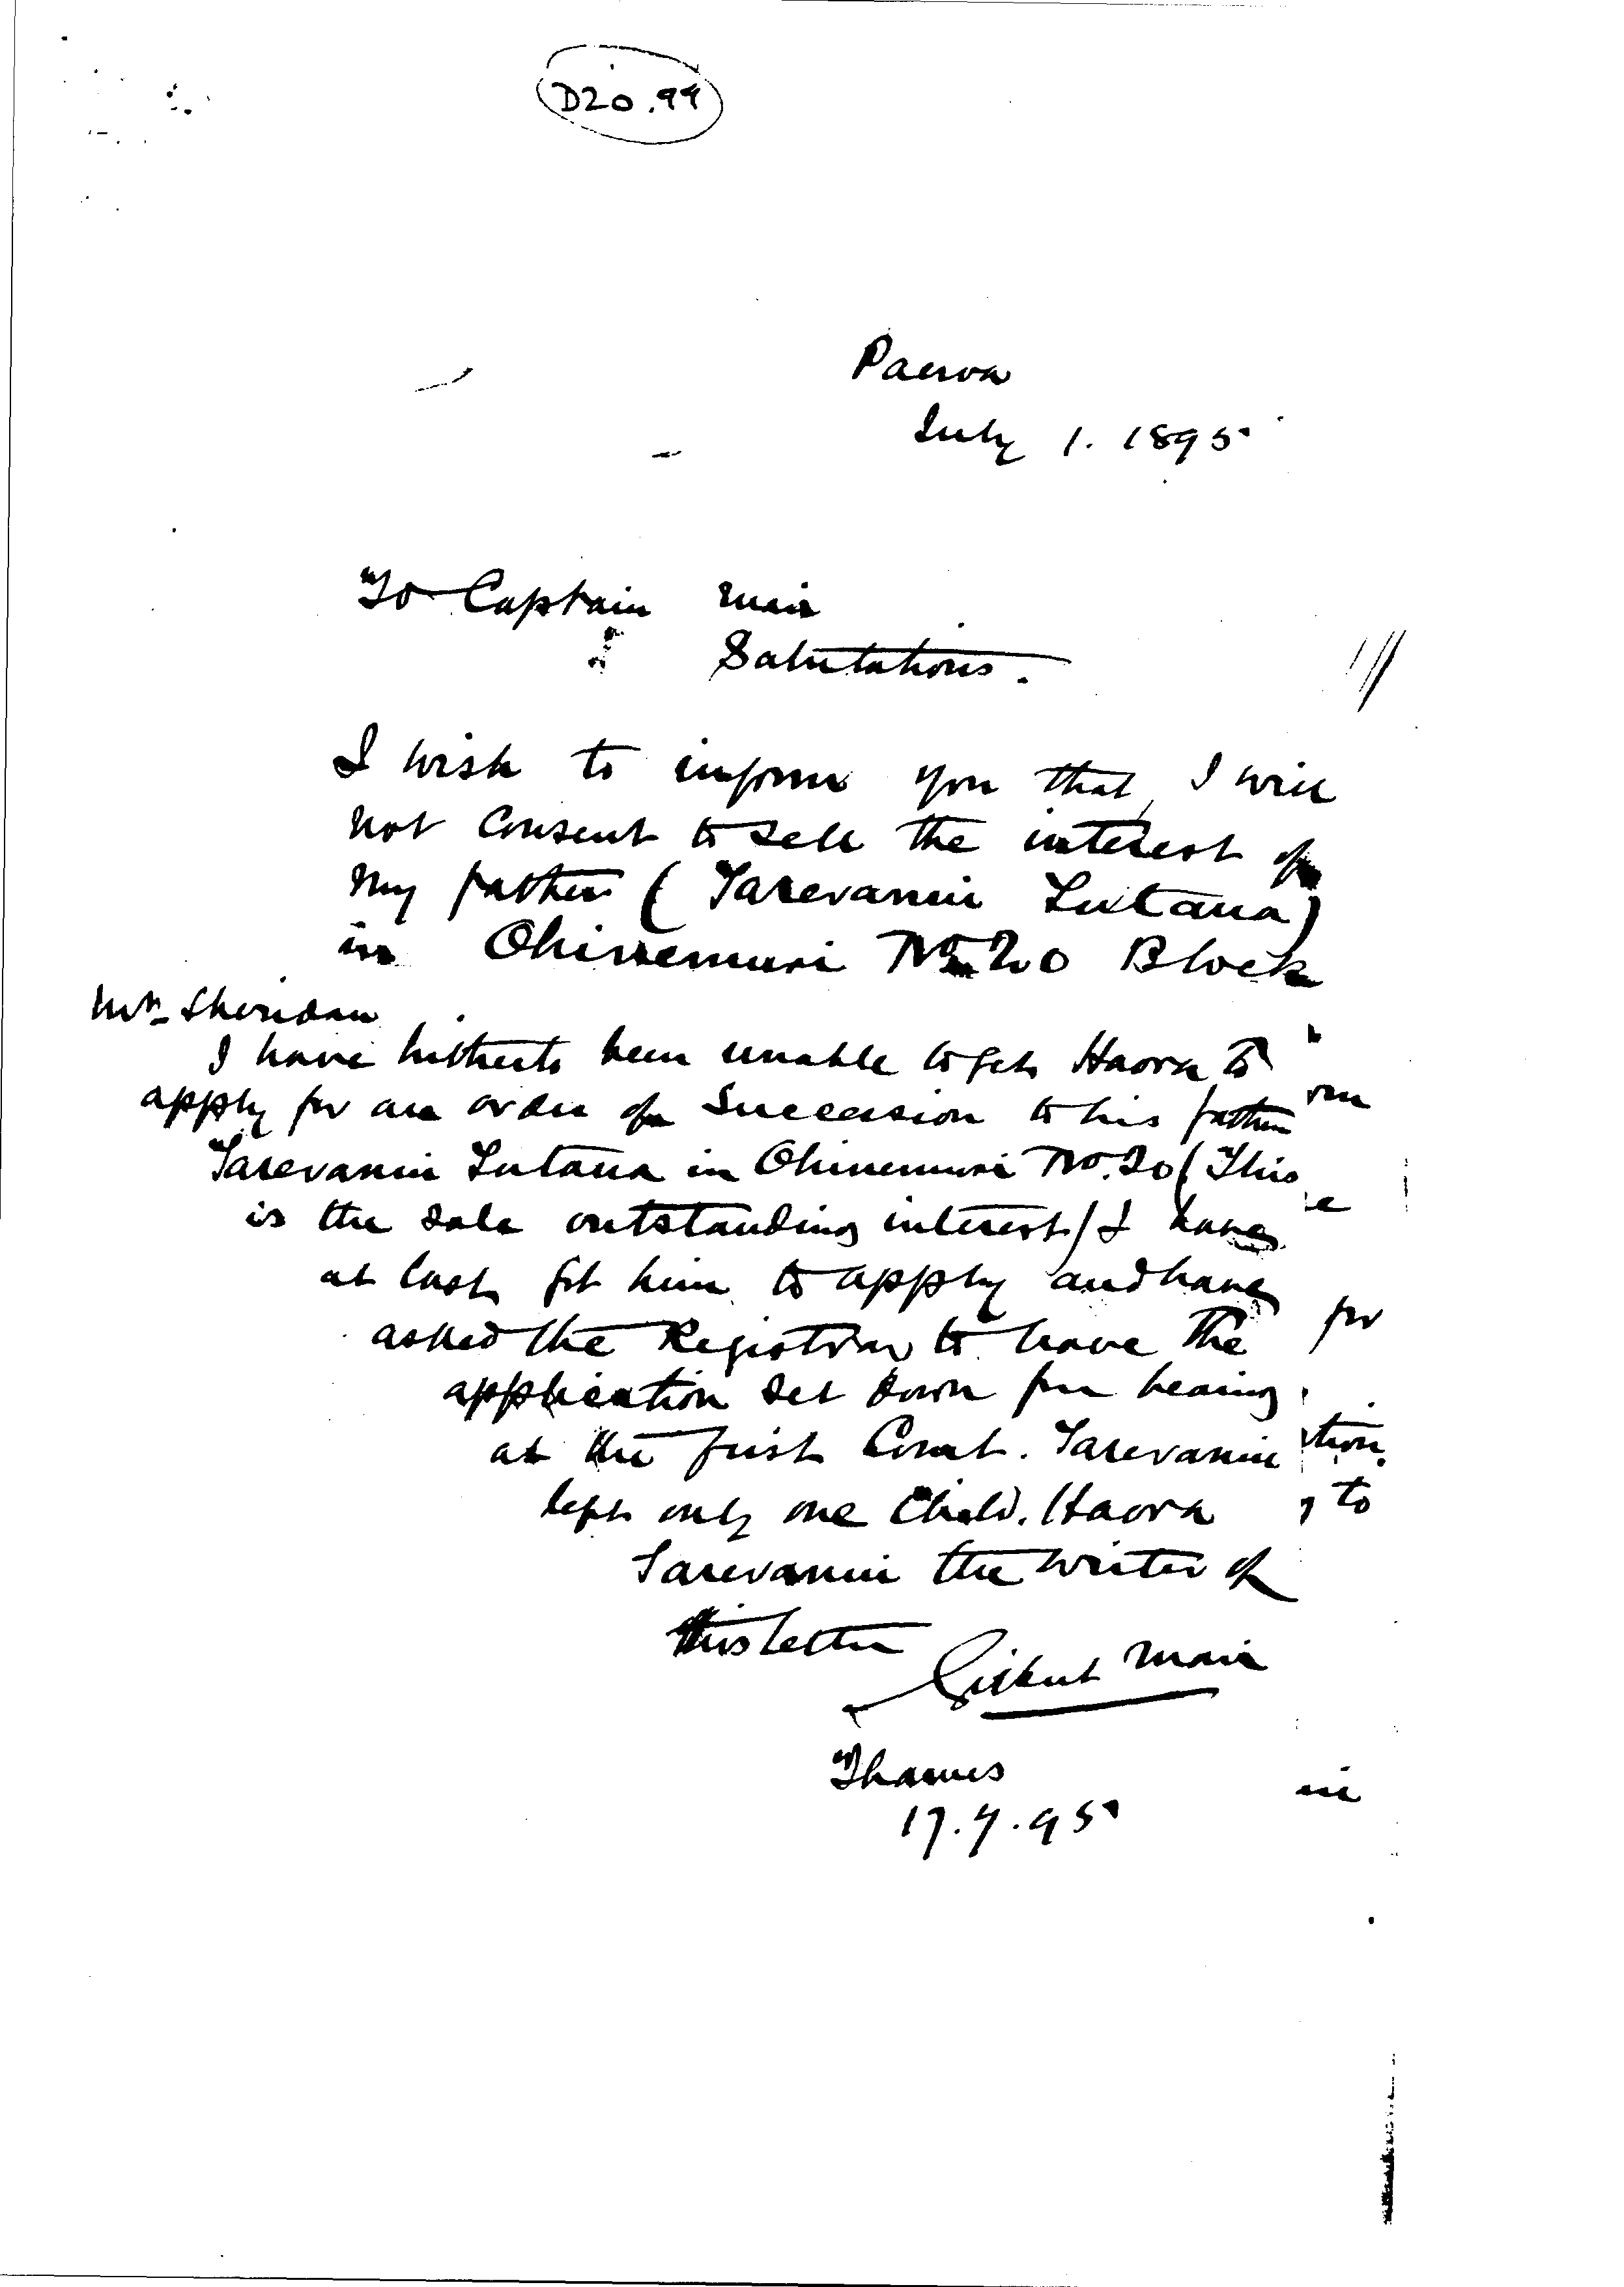 D20.94
Paeroa
July 1. 1895
To Captain Mair
Salutations.
I wish to inform you that, I will
not consent to sell the interest of
my father (Tarevanui Lutana)
in Ohinemuri No 20 Block
Mr. Sheridan
I have hitherto been unable to get Haora to
apply for an order of Succession to his father
Tarevanui Lutana in Ohinemuri No. 20 (This
is the sole outstanding interest) I have
at last got him to apply and have
asked the Registrar to have the for
application set down for hearing
at the first Court. Tarevanui tion.
left only one Child. Haora to
Tarevanui the writer of
this letter
Gilbert Mair
Thames
in
17.7.95